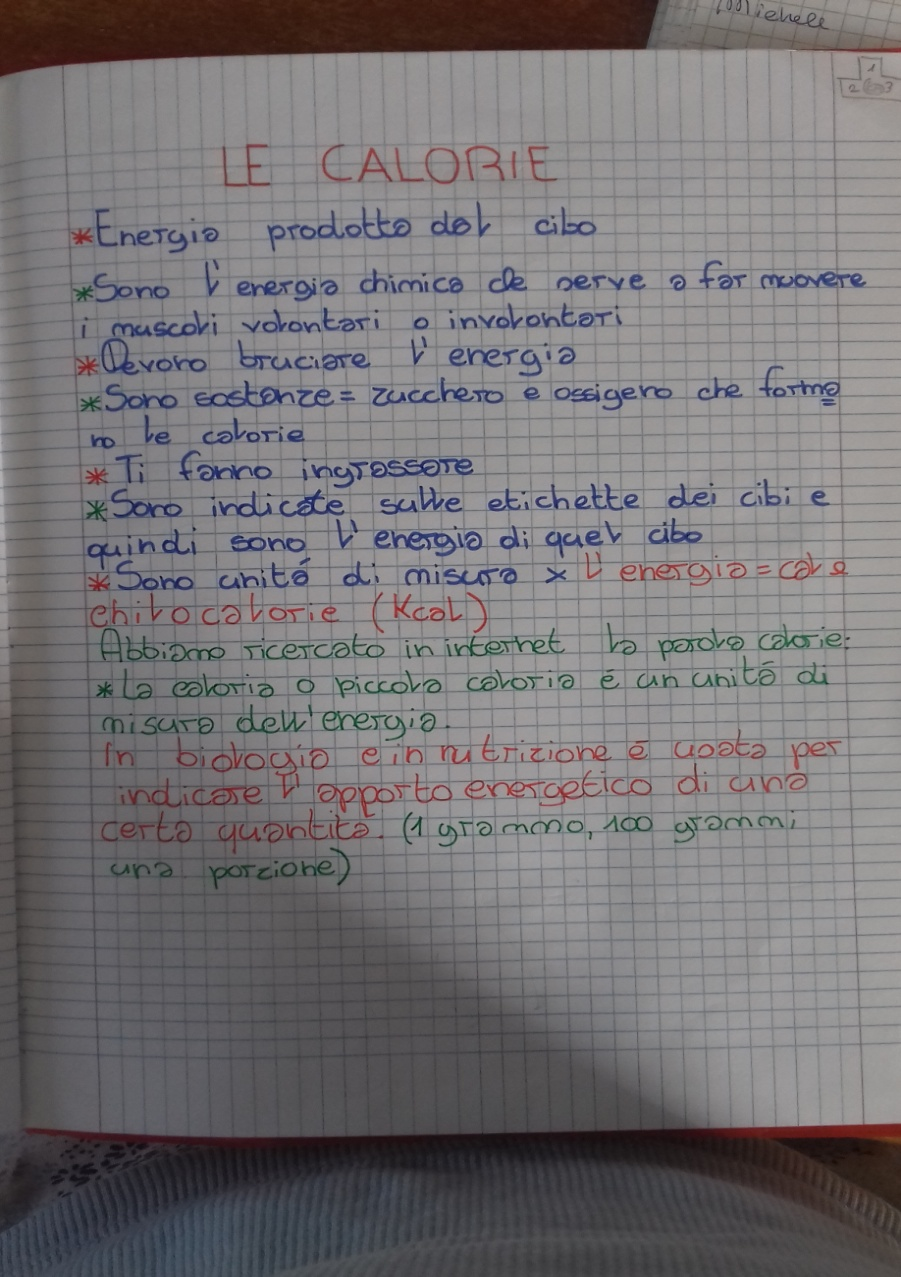 ichele
1
2 3
LE CALORIE
*Energia prodotta dal cibo
*Sono l'energia chimica che serve a far muovere
i muscoli volontari o involontari
*Devono bruciare l'energia
*Sono sostanze = zucchero e ossigeno che forma
no le calorie
* Ti fanno ingrassare
*Sono indicate sulle etichette dei cibi e
quindi sono l'energia di quel cibo
*Sono unità di misura x l'energia = cal e
chilocalorie (Kcal)
Abbiamo ricercato in internet la parola calorie:
*La caloria o piccola caloria é un unità di
misura dell'energia.
In biologia e in nutrizione é usata per
indicare l'apporto energetico di una
certa quantità. (1 grammo, 100 grammi,
una porzione)